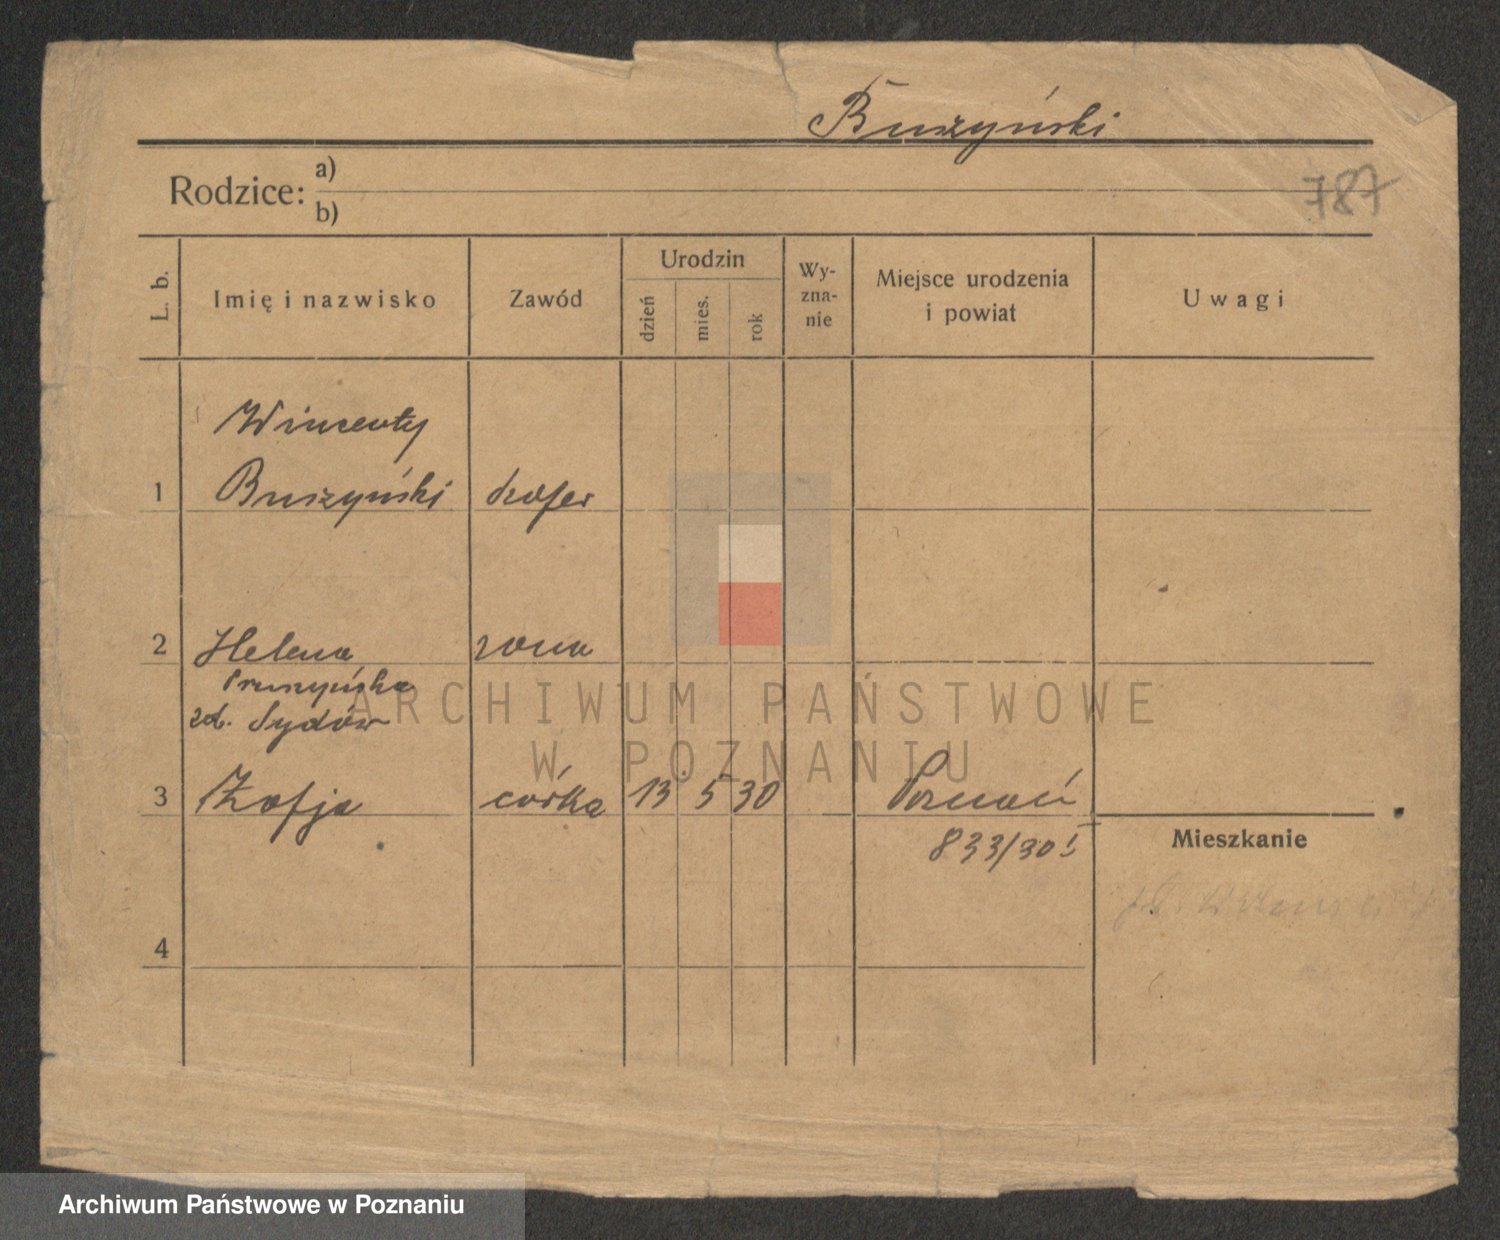 Buszyński
Rodzice: a)
b)
787
L. b.
Imię i nazwisko
Zawód
Urodzin
dzień
mies.
rok
Wy-
zna-
nie
Miejsce urodzenia
i powiat
Uwagi
Wincenty
1 Buszyński szofer
2 Helena żona
Pruszyńska
zd. Sydów
3 Zofja córka 13 5 30 Poznań
833/30 I
Mieszkanie
4
ARCHIWUM PAŃSTWOWE
W POZNANIU
Archiwum Państwowe w Poznaniu